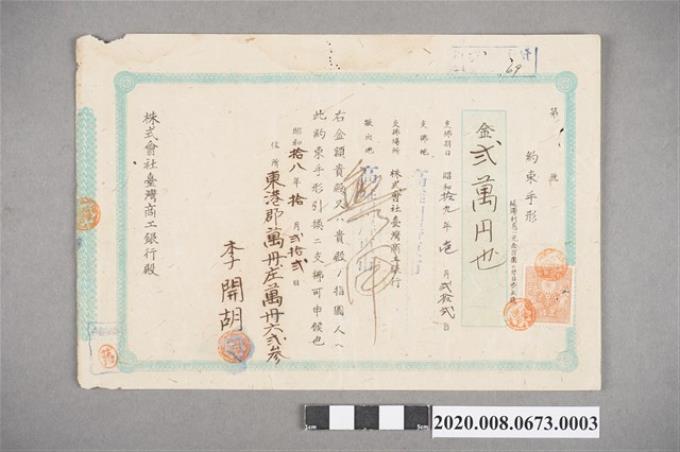 第 號
約束手形
金貳萬円也
支拂期日 昭和拾九年壱月貳拾貳日
支拂地
支拂場所 株式會社臺灣商工銀行
振出地
右金額貴殿又ハ貴殿ノ指圖人ヘ
此約束手形引換ニ支拂可申候也
昭和拾八年拾月貳拾貳日
住所 東港郡萬丹庄萬丹六貳参
李開胡
株式會社臺灣商工銀行殿
29
1cm
5cm
2020.008.0673.0003